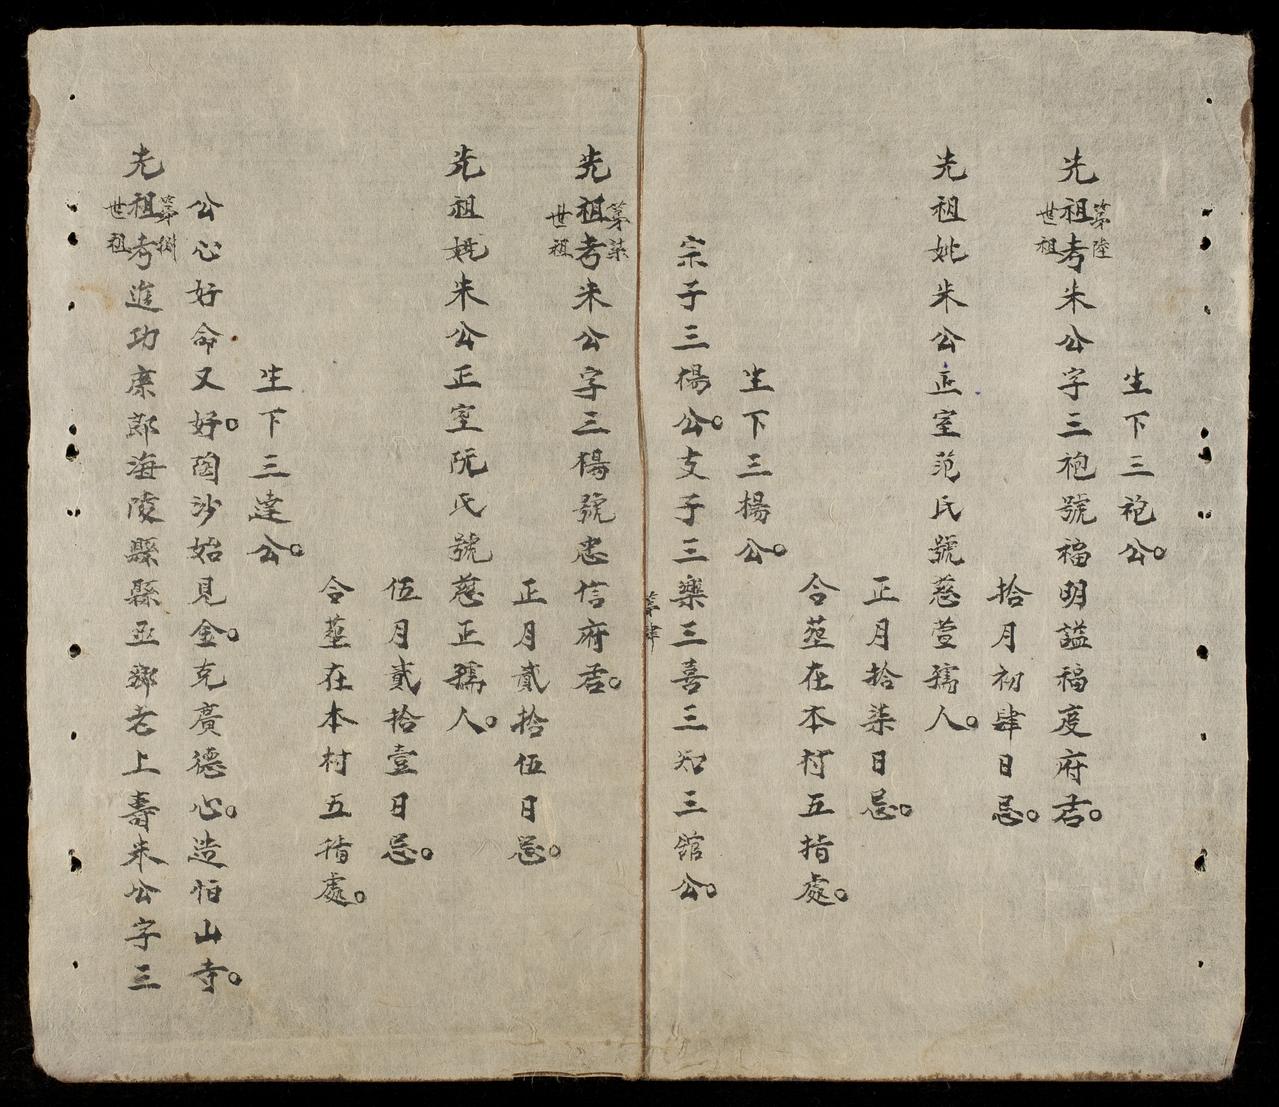 生下三袍公。
先祖考朱公字三袍號福明謚福度府君。
第陸
世祖
拾月初肆日忌。
先祖妣朱公正室范氏號慈萱孺人。
正月拾柒日忌。
合塟在本村五指處。
生下三揚公。
宗子三楊公。支子三樂三喜三知三舘公。
第肆
先祖考朱公字三楊號忠信府君。
第柒
世祖
正月貳拾伍日忌。
先祖妣朱公正室阮氏號慈正孺人。
伍月貳拾壹日忌。
合塟在本村五指處。
生下三達公。
公心好命又好。淘沙始見金。克廣德心。造怕山寺。
先祖考進功庶郎海陵縣縣丞鄉老上壽朱公字三
第捌
世祖